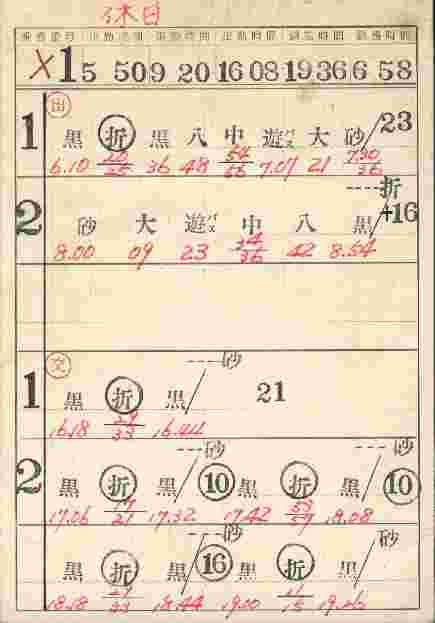 休日
X1 5 50 9 20 16 08 19 36 6 58
出
1 黒 折 黒 八 中 遊バス 大 砂 23
6.10 20/25 36 48 54/56 7.07 21 7.30/36
折
2 砂 大 遊バス 中 八 黒 +16
8.00 09 23 34/36 42 8.54
交
砂
1 黒 折 黒 21
16.18 29/33 16.44
砂 砂
2 黒 折 黒 10 黒 折 黒 10
17.06 17/21 17.32 17.42 53/57 18.08
砂 砂
黒 折 黒 16 黒 折 黒
18.18 29/33 18.44 19.00 11/15 19.26